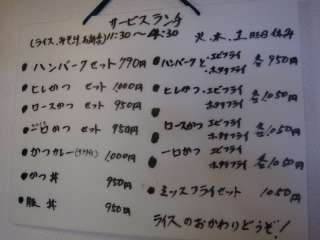 サービスランチ
(ライス、みそ汁、お新香) 11:30〜4:30
火、木、土日お休み
・ハンバーグセット 790円
・ヒレかつ セット 1,000円
・ロースかつ セット 950円
・一口かつ セット 950円
・かつカレー 1,000円
・かつ丼 950円
・豚丼 950円
・ハンバーグと・エビフライ・ホタテフライ 各950円
・ヒレかつ・エビフライ ホタテフライ 各1050円
・ロースかつ・エビフライ ホタテフライ 各1050円
・一口かつ・エビフライ ホタテフライ 各1050円
・ミックスフライセット 1050円
ライスのおかわりどうぞ!